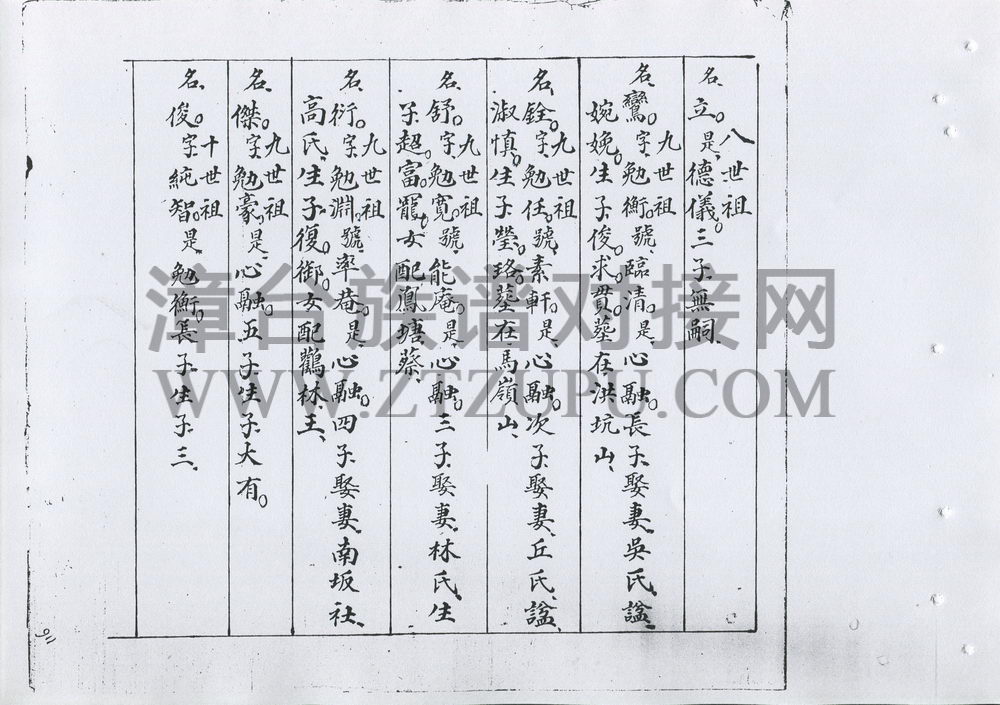 八世祖
名、立。是、德儀。三子無嗣、
九世祖
名、鸞。字、勉衡號、臨清。是、心融。長子、娶妻、吳氏、諡、
婉娩。生子俊。求。貫。葬在洪坑山、
九世祖
名、銓。字、勉任。號、素軒。是、心融。次子、娶妻、丘氏、諡、
淑慎。生子、瑩。珞。葬在、馬嶺山、
九世祖
名、舒。字、勉寬。號、能庵。是、心融。三子、娶妻、林氏、生
子、超。富。寵。女配鳳塘蔡、
九世祖
名、衍。字、勉淵。號、率菴。是、心融。四子、娶妻、南坂社、
高氏、生子、復。御。女配鸛林、王、
九世祖
名、傑。字、勉豪。是、心融。五子生子、大有。
十世祖
名、俊。字、純智。是、勉衡。長子、生子三、
漳台族谱对接网
WWW.ZTZUPU.COM